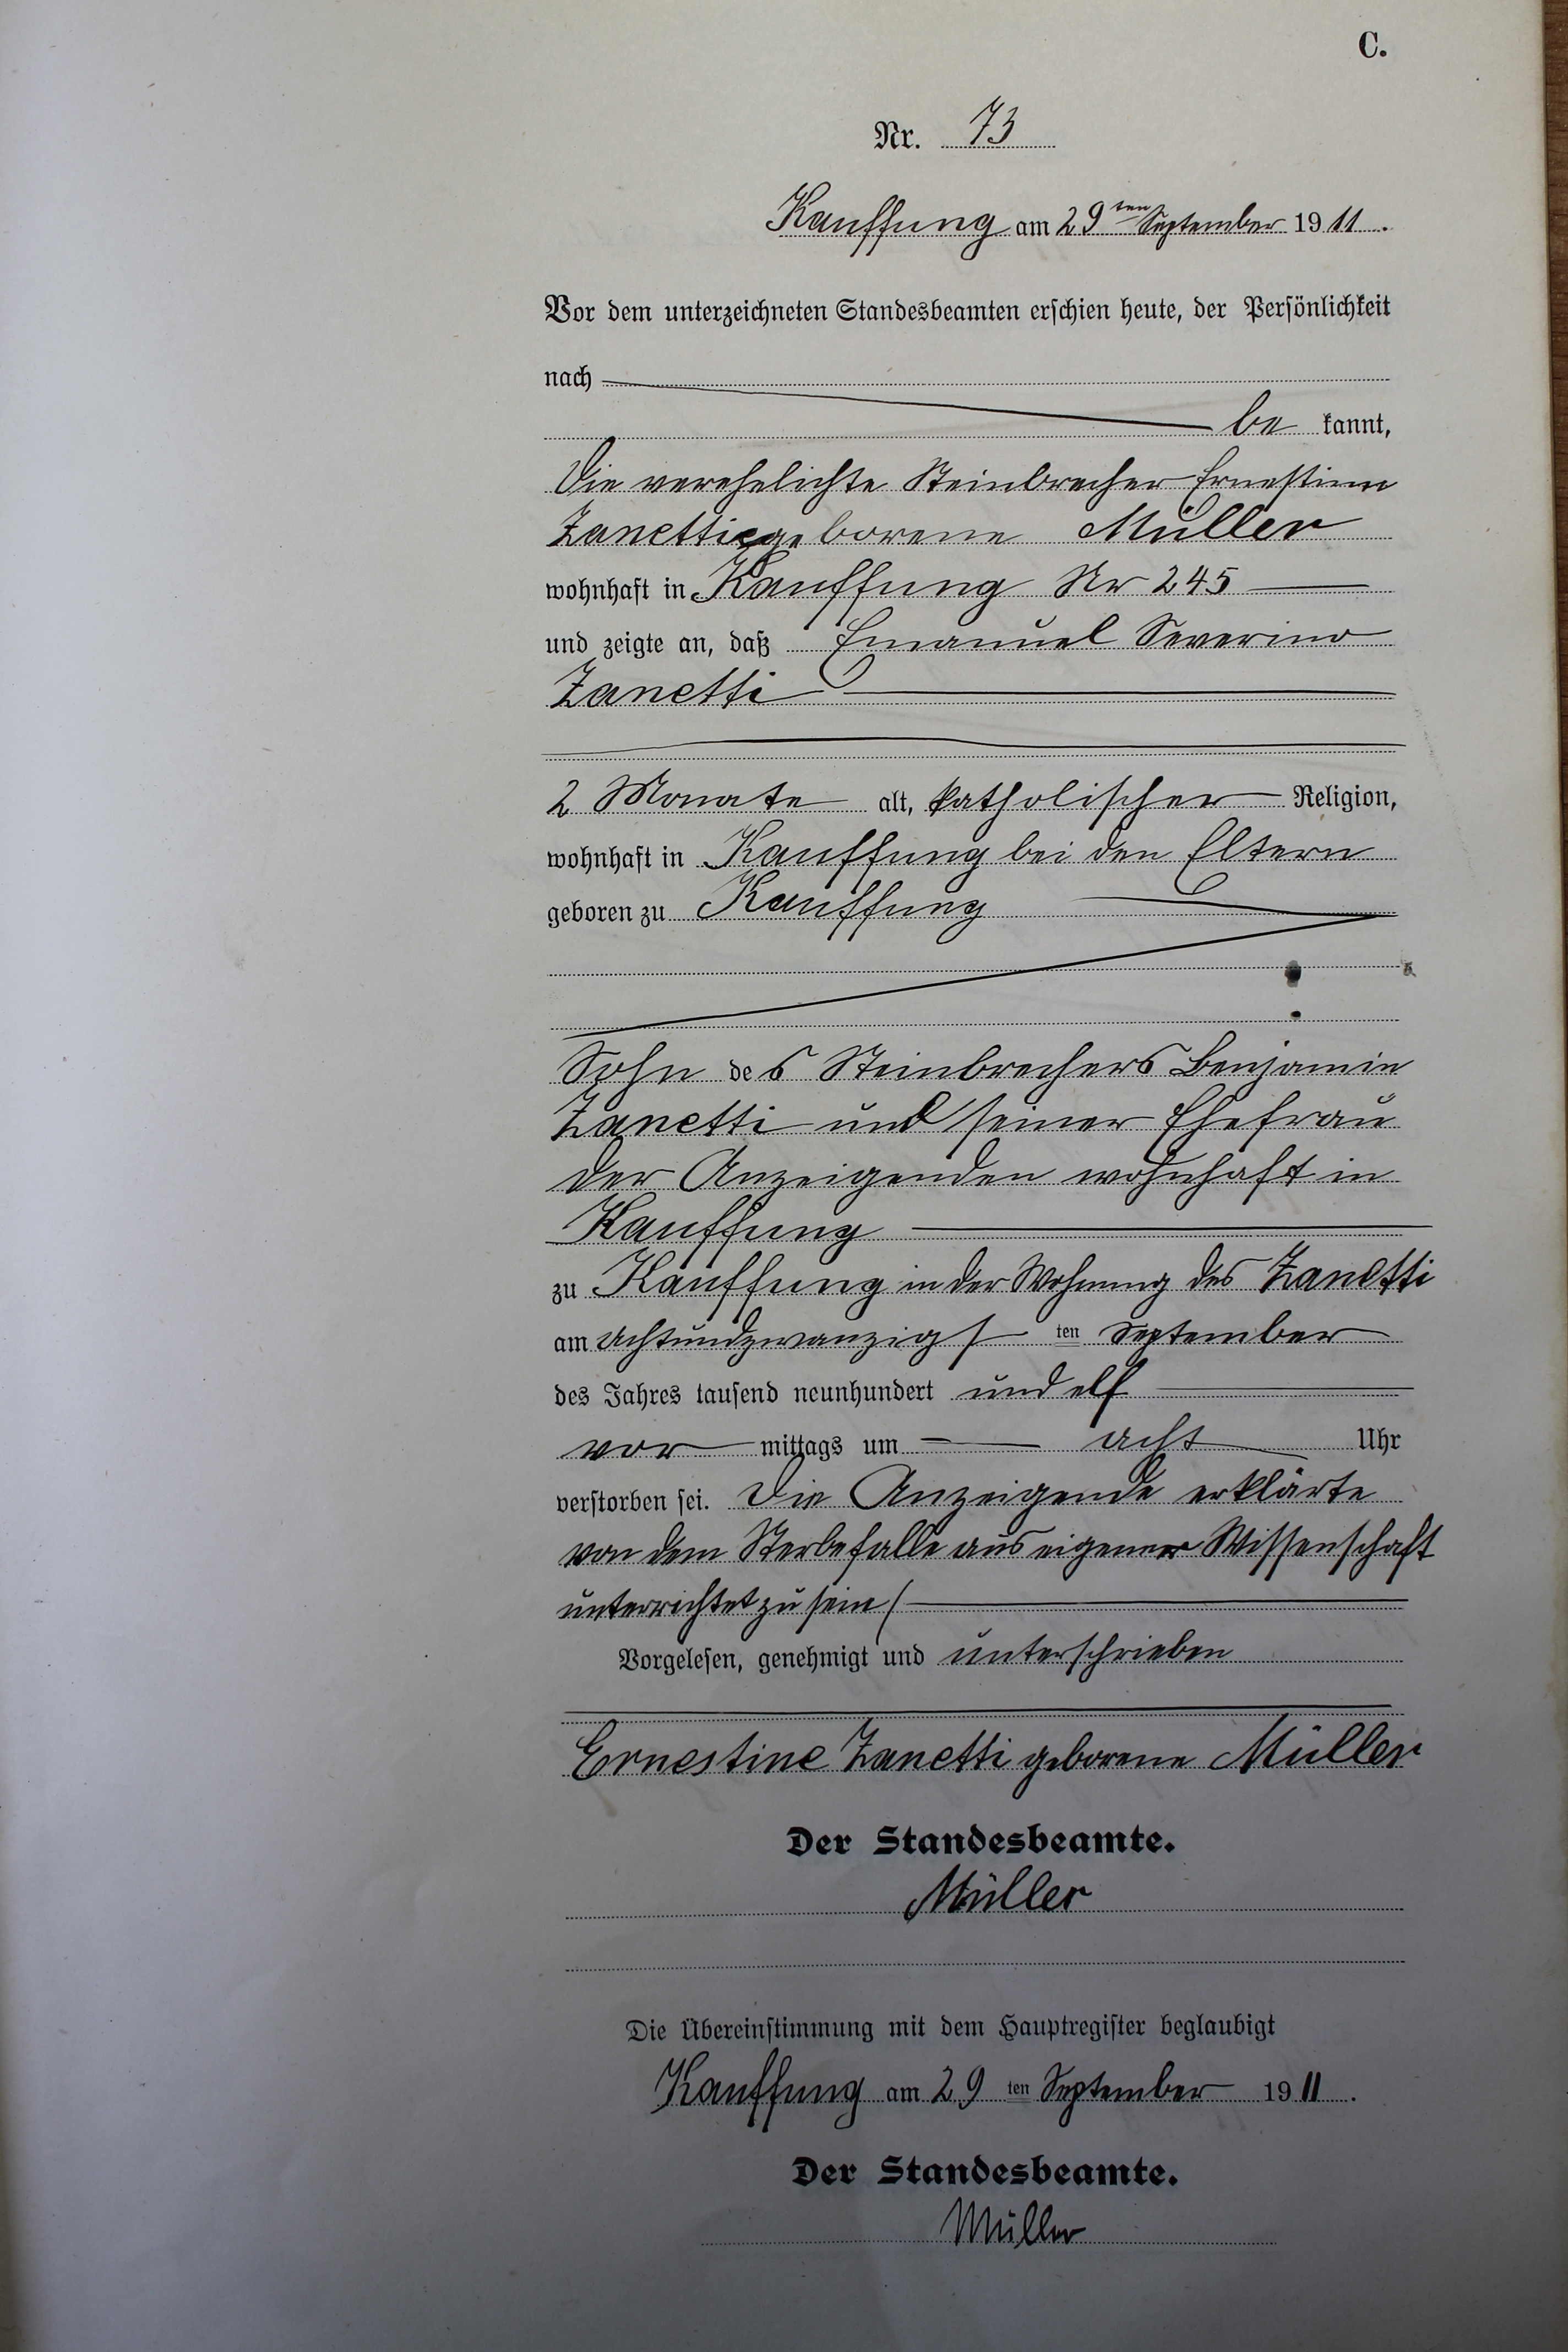 C.
Nr. 73
Kauffung am 29ten September 1911.
Vor dem unterzeichneten Standesbeamten erschien heute, der Persönlichkeit
nach
be kannt,
die verehelichte Steinbrecher Ernestine
Zanetti geborene Müller
wohnhaft in Kauffung Nr 245
und zeigte an, daß Emanuel Severino
Zanetti
2 Monate alt, katholischer Religion,
wohnhaft in Kauffung bei den Eltern
geboren zu Kauffung
Sohn des Steinbrechers Benjamin
Zanetti und seiner Ehefrau
der Anzeigenden wohnhaft in
Kauffung
zu Kauffung in der Wohnung des Zanetti
am achtundzwanzigsten September
des Jahres tausend neunhundert und elf
vor mittags um acht Uhr
verstorben sei. Die Anzeigende erklärte
von dem Sterbefalle aus eigener Wissenschaft
unterrichtet zu sein
Vorgelesen, genehmigt und unterschrieben
Ernestine Zanetti geborene Müller
Der Standesbeamte.
Müller
Die Übereinstimmung mit dem Hauptregister beglaubigt
Kauffung am 29 ten September 1911.
Der Standesbeamte.
Müller